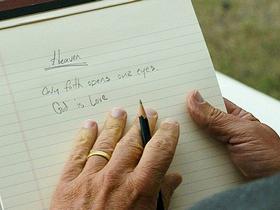 Heaven
Only faith opens one eyes.
God is Love